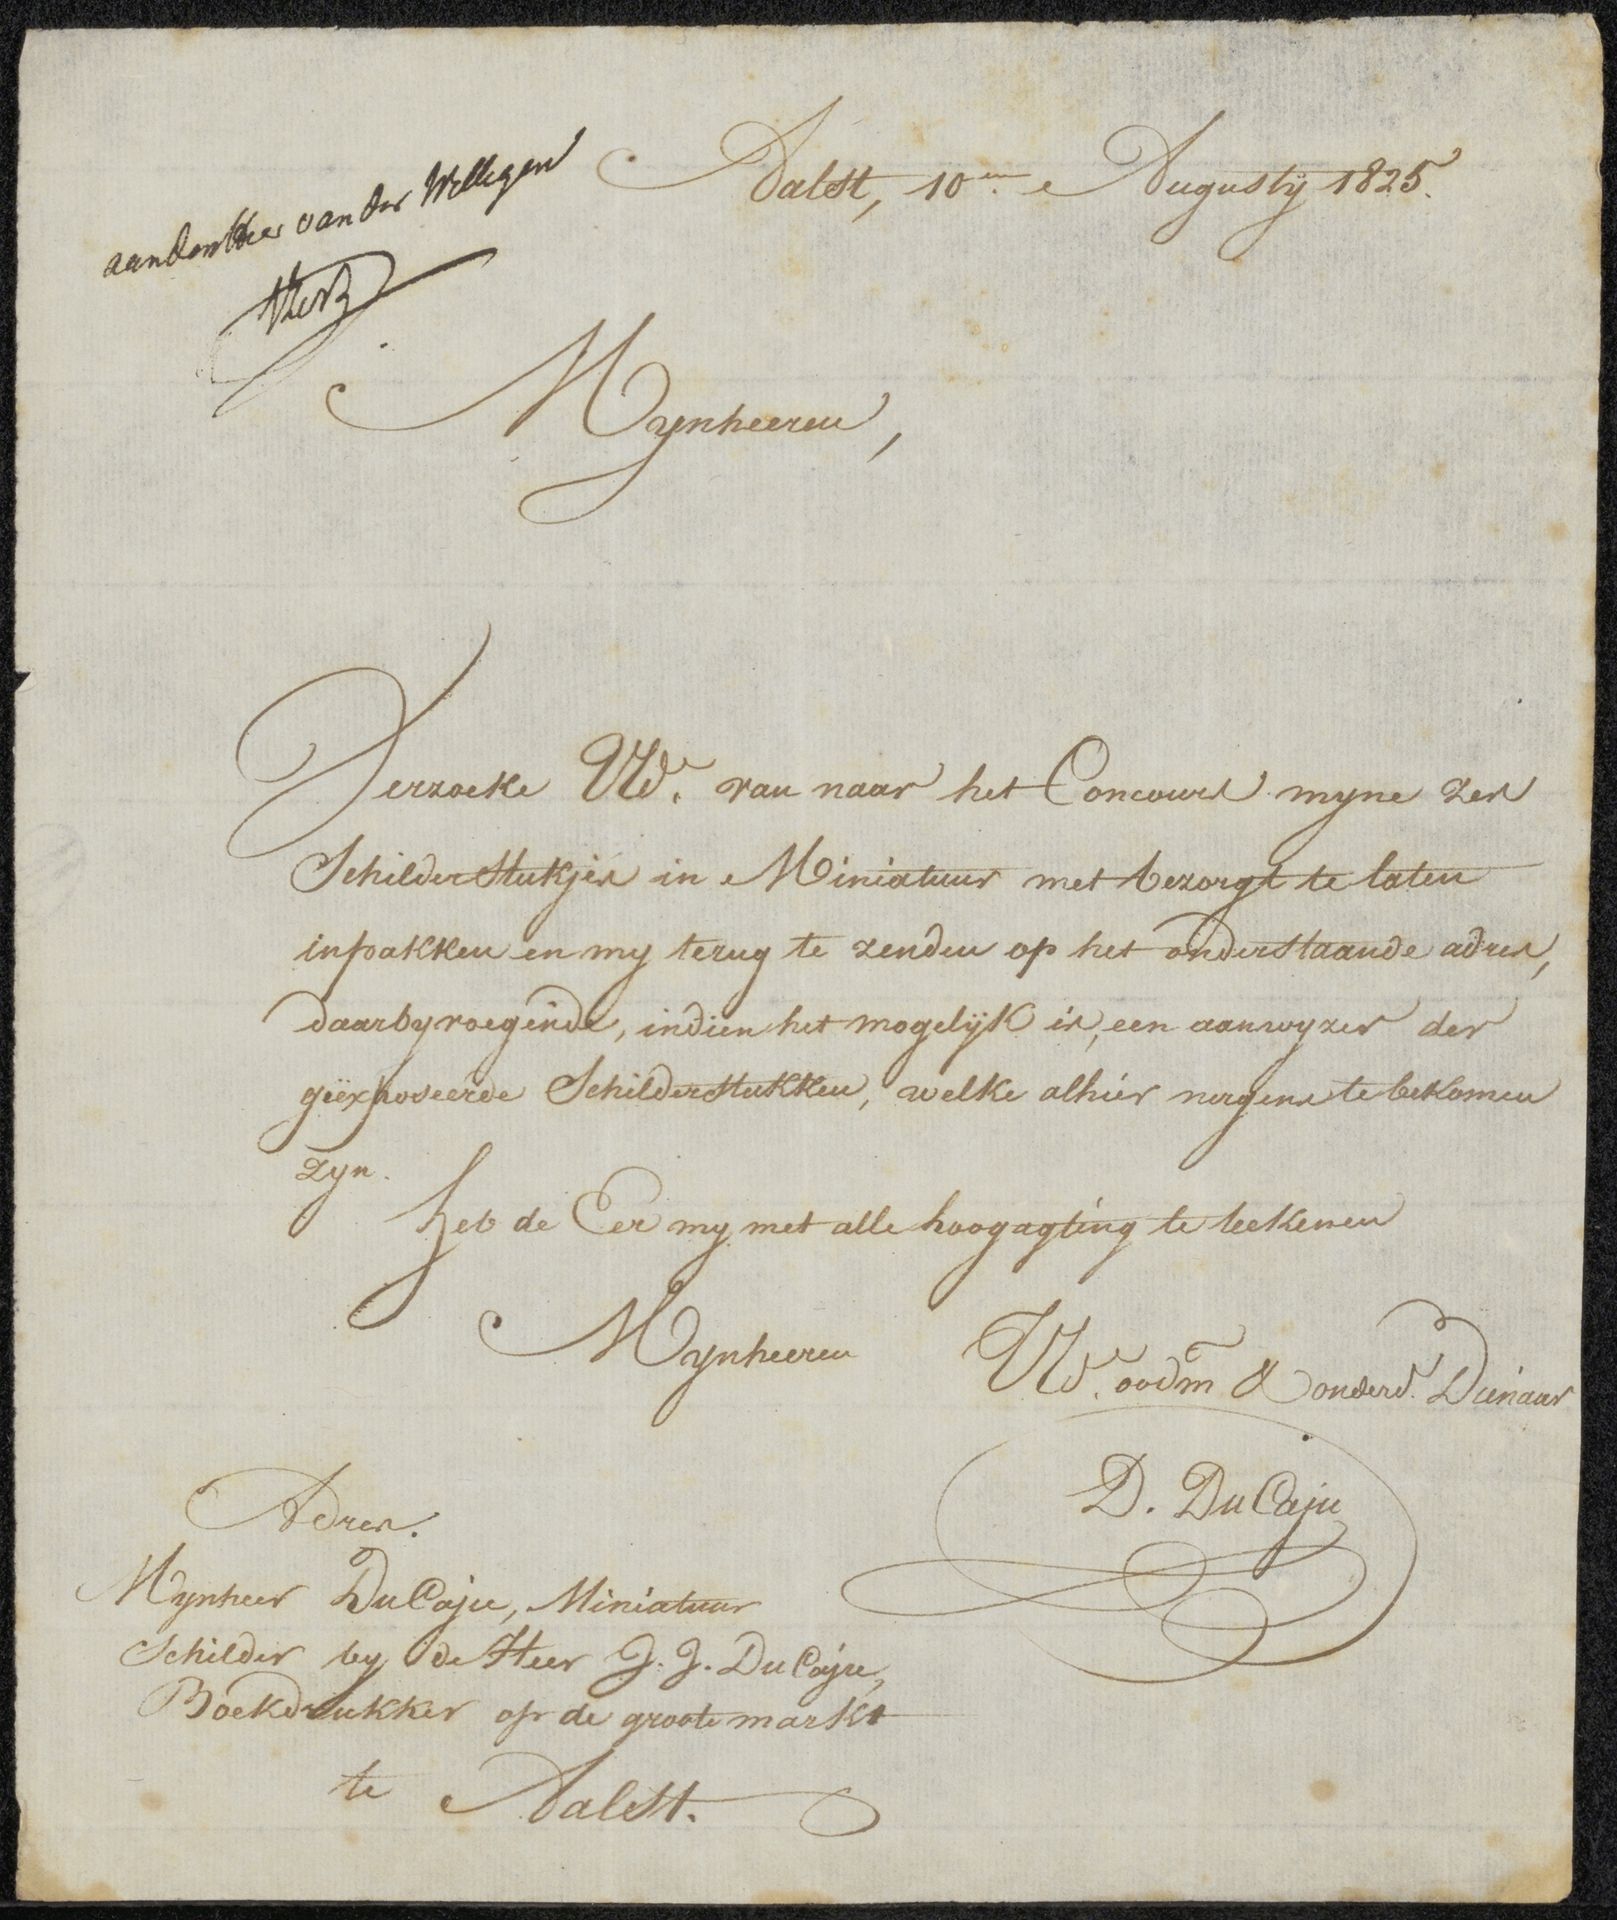 Aalst, 10en Augustij 1825.
aan den Heer van der Willigen
Mynheeren,
Verzoeke UEd. van naar het Concours myne zes
Schilderstukjes in Miniatuur met bezorgt te laten
inpakken en my terug te zenden op het onderstaande adres,
daarbyvoegende, indien het mogelijk is, een aanwyzer der
geëxposeerde Schilderstukken, welke alhier nergens te bekomen
zyn.
Heb de Eer my met alle hoogagting te teekenen
Mynheeren
UEd. oodm & onderd. Dienaar
D. DuCaju
Adres.
Mynheer DuCaju, Miniatuur
Schilder by de Heer J. J. DuCaju,
Boekdrukker op de groote markt
te Aalst.